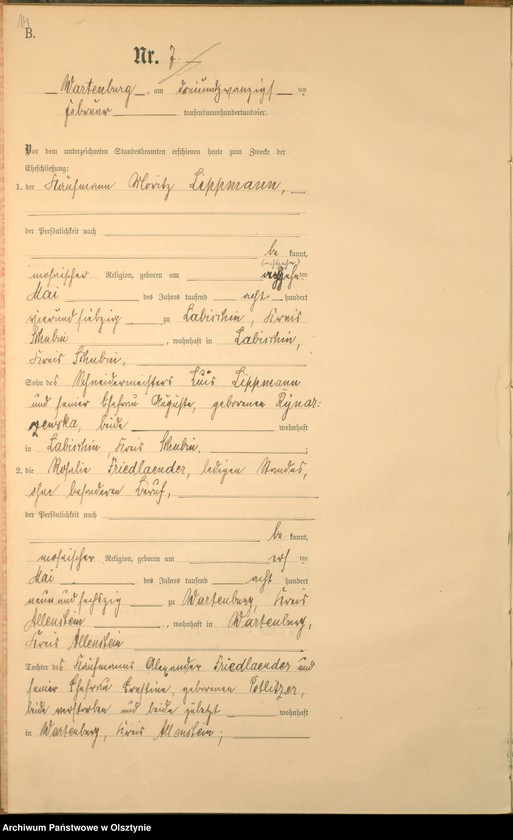 14
B.
Nr. 7
Wartenburg, am dreiundzwanzigsten
Februar tausendneunhundertundvier.
Vor dem unterzeichneten Standesbeamten erschienen heute zum Zwecke der
Eheschließung:
1. der Kaufmann Moritz Lippmann,
der Persönlichkeit nach
be kannt,
(achtzehn)
mosaischer Religion, geboren am achtzehnten
Mai des Jahres tausend acht hundert
vierundsiebzig zu Labischin, Kreis
Schubin, wohnhaft in Labischin,
Kreis Schubin,
Sohn des Schneidermeisters Lippmann
und seiner Ehefrau Auguste, geborenen Rynar-
zewska, beide wohnhaft
in Labischin, Kreis Schubin,
2. die Rosalie Friedlaender, ledigen Standes,
ohne besonderen Beruf,
der Persönlichkeit nach
be kannt,
mosaischer Religion, geboren am ersten
Mai des Jahres tausend acht hundert
neunundsechszig zu Wartenburg, Kreis
Allenstein, wohnhaft in Wartenburg,
Kreis Allenstein
Tochter des Kaufmanns Alexander Friedlaender und
seiner Ehefrau Ernstine, geborenen Potlitzer,
beide verstorben und beide zuletzt wohnhaft
in Wartenburg, Kreis Allenstein;
Archiwum Państwowe w Olsztynie